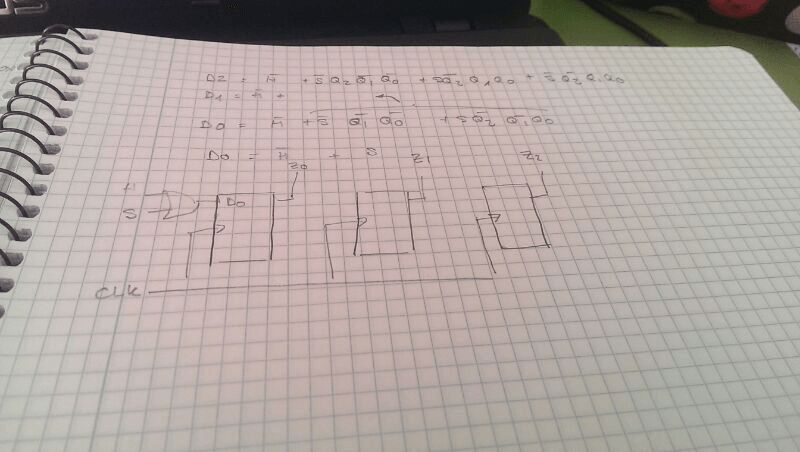 D2 = H̅ + S̅ Q2 Q̅1 Q̅0 + S Q̅2 Q1 Q0 + S̅ Q̅2 Q1 Q0
D1 = H̅ +
D0 = H̅ + S̅ Q̅1 Q̅0 + S Q̅2 Q̅1 Q0
D0 = H̅ + S
Z0 Z1 Z2
H
D0
S
CLK